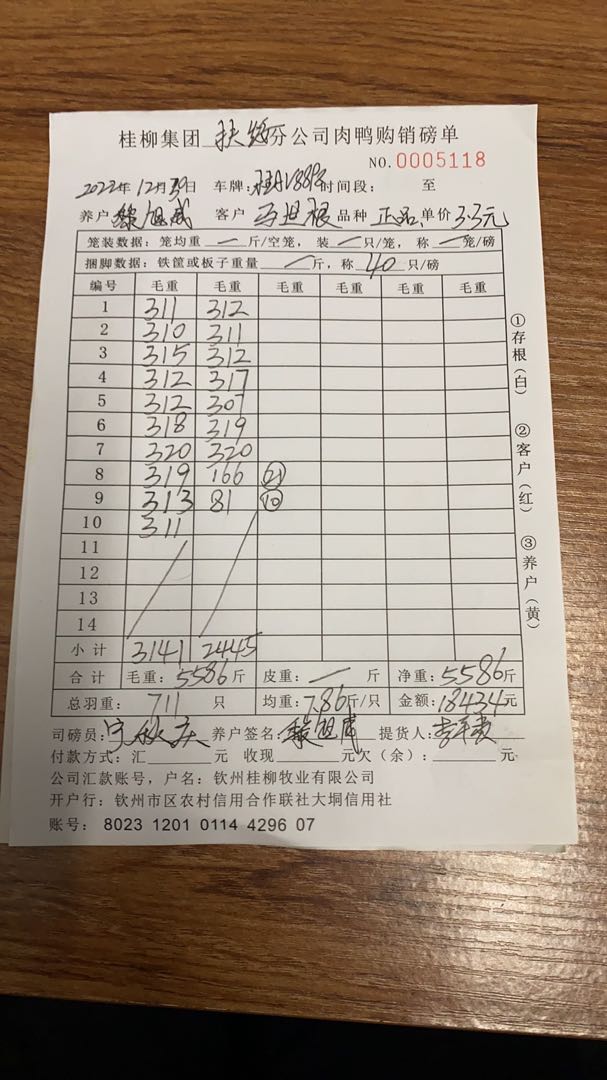 桂柳集团 扶绥 分公司肉鸭购销磅单
NO.0005118
2022年12月30日 车牌: 时间段: 至
养户 黎旭成 客户 品种 正品 单价 3.3元
笼装数据: 笼均重 — 斤/空笼, 装 — 只/笼, 称 — 笼/磅
捆脚数据: 铁筐或板子重量 — 斤, 称 40 只/磅
编号 毛重 毛重 毛重 毛重 毛重 毛重
1 311 312
2 310 311
3 315 312
4 312 317
5 312 307
6 318 319
7 320 320
8 319 166 21
9 313 81 10
10 311
11
12
13
14
小计 3141 2445
合计 毛重: 5586斤 皮重: — 斤 净重: 5586斤
总羽重: 711 只 均重: 7.86斤/只 金额: 18434元
司磅员: 宁秋庆 养户签名: 黎旭成 提货人:
付款方式: 汇 元 收现 元欠(余): 元
公司汇款账号, 户名: 钦州桂柳牧业有限公司
开户行: 钦州市区农村信用合作联社大垌信用社
账号: 8023 1201 0114 4296 07
①存根(白)
②客户(红)
③养户(黄)